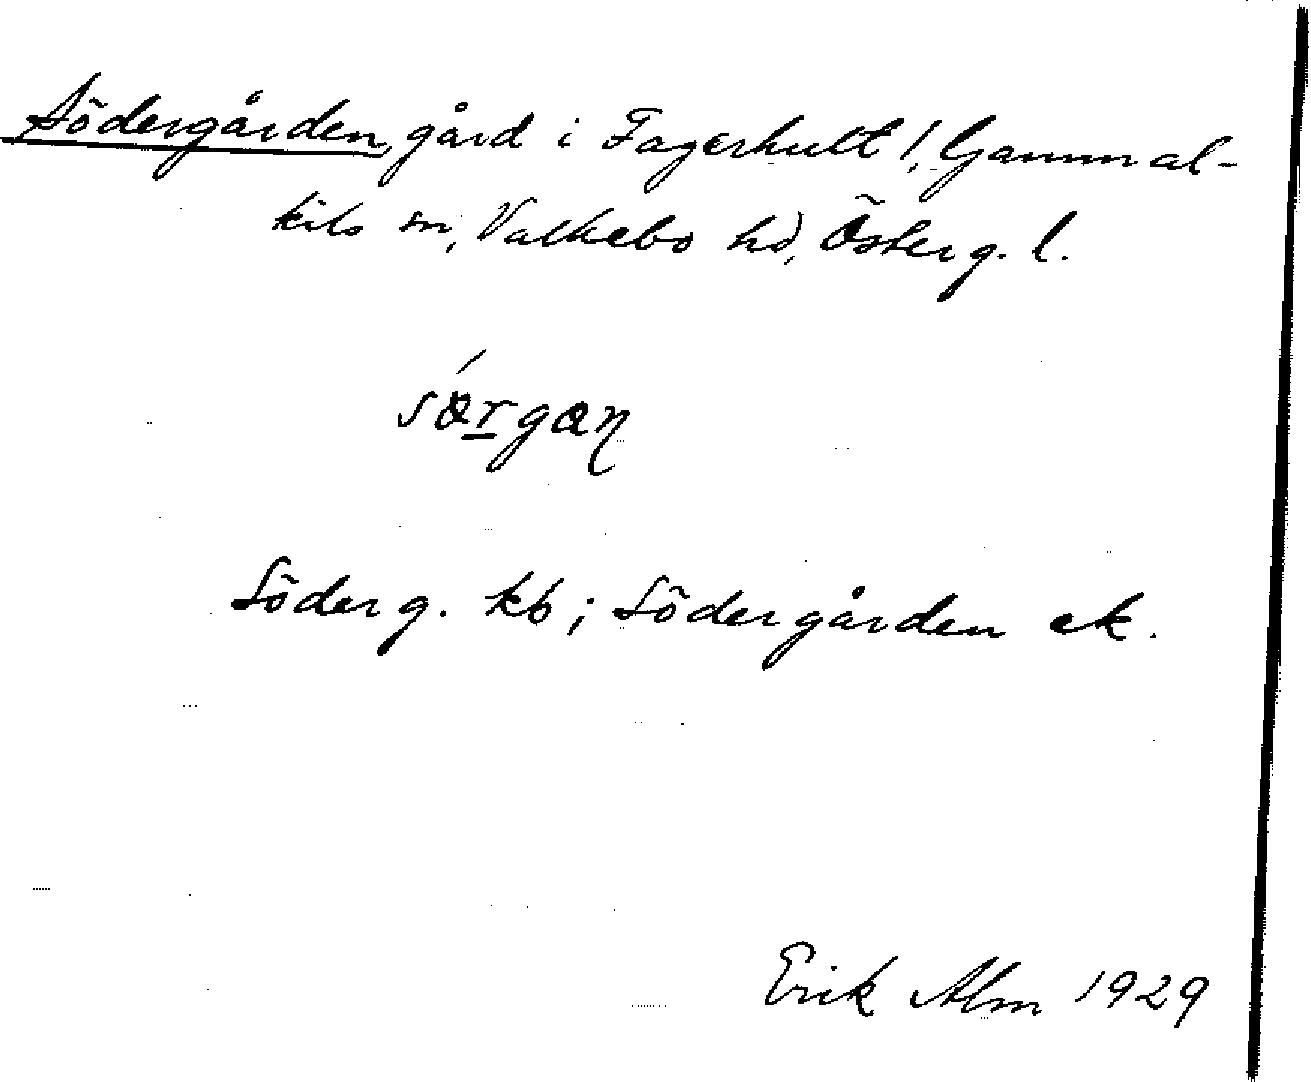 Södergården, gård i Fagerhult !, Gammal-
kils sn, Valkebo hd, Österg. l.
Söderg. kb; Södergården ek.
Erik Alm 1929